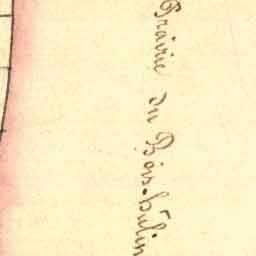 Prairie du Bois-hulin